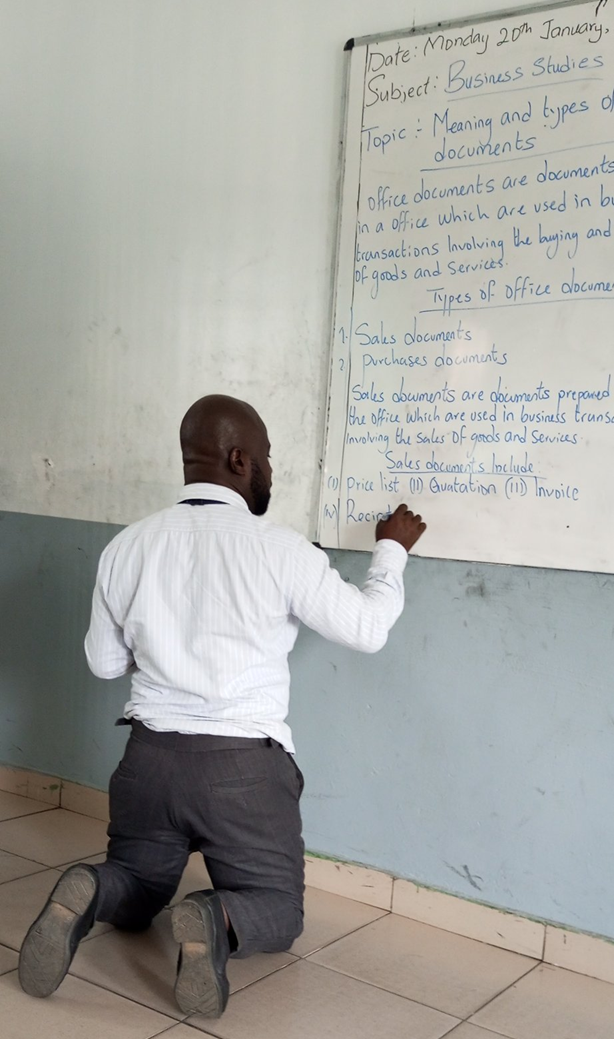 Date: Monday 20th January,
Subject: Business Studies
Topic :- Meaning and types of
documents
Office documents are documents
in a office which are used in bu
transactions Involving the buying and
of goods and Services.
Types of office docume
1. Sales documents
2 purchases documents
Sales documents are documents prepared
the office which are used in business transa
Involving the sales of goods and Services.
Sales documents Include
(I) Price list (II) Quatation (III) Invoice
(IV) Recie